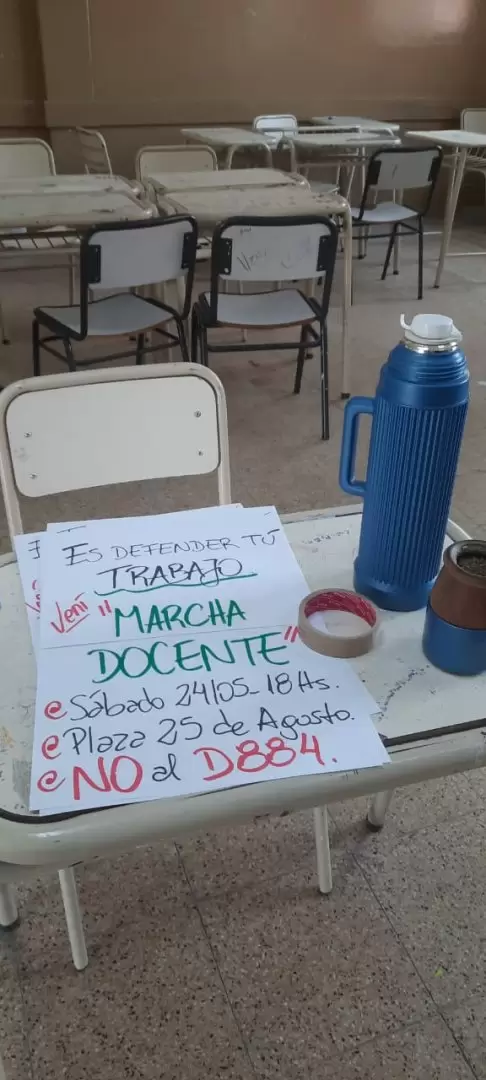 ES DEFENDER TÚ
TRABAJO
Vení "MARCHA
DOCENTE"
Sábado 24/05_18Hs.
Plaza 25 de Agosto.
NO al D884.